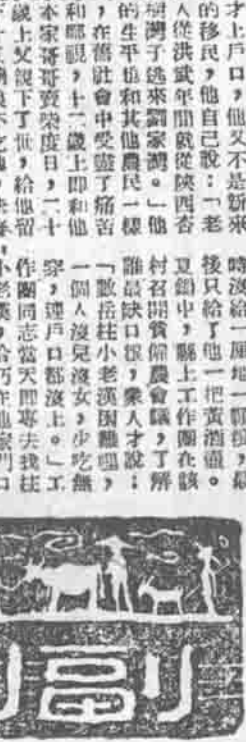 才上戶口，他又不是新來
的移民，他自己說：「老
人從洪武年間就從陝西杏
樹灣子逃來劉家灣。」他
的生平也和其他農民一樣
，在舊社會中受盡了痛苦
和鄙視，十二歲上即和他
本家哥哥賣柴度日，二十
歲上父親下了世，給他留
時沒給一厘地一顆糧，最
後只給了他一把黃酒壺。
夏鎮中，縣上工作團在該
村召開貧僱農會議，了解
誰最缺口很，衆人才說：
「數岳柱小老漢困難哩，
一個人沒兒沒女，少吃無
穿，連戶口都沒上。」工
作團同志當天即專去找柱
小老漢，恰巧在他家門口
副